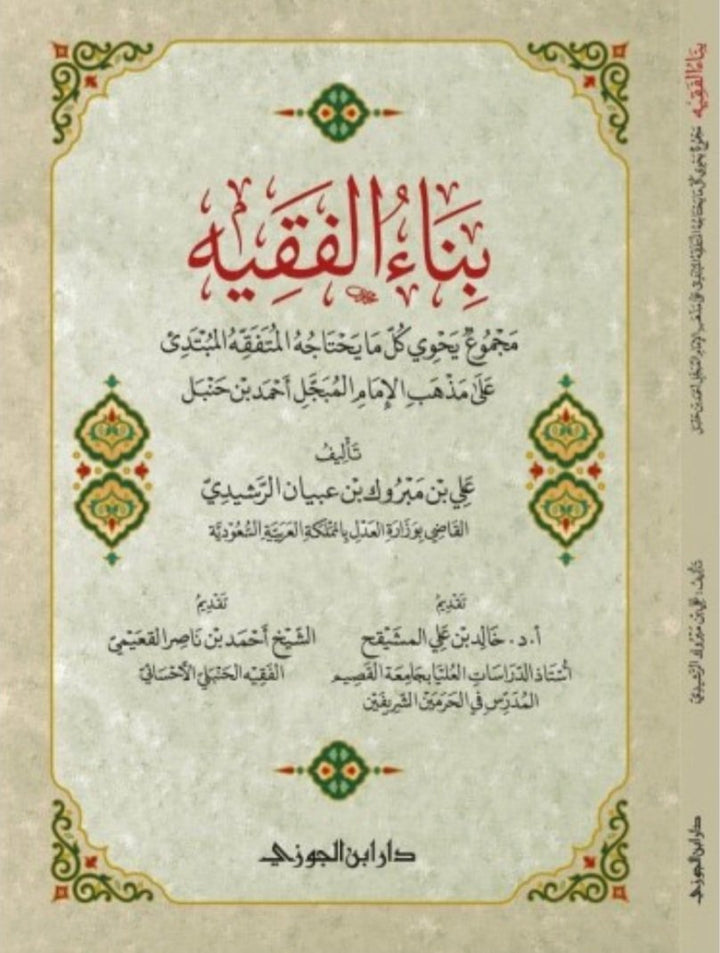 بِنَاءُ الفَقِيه
مَجْمُوعٌ يَحْوِي كُلّ مَا يَحْتَاجُهُ المُتَفَقِّهُ المُبْتَدِئ
عَلَى مَذْهَبِ الإِمَامِ المُبَجَّلِ أَحْمَد بْن حَنْبَل
تَأْلِيفُ
عَلِي بْن مَبْرُوك بْن عبيان الرَّشِيدِيّ
القَاضِي بِوَزَارَةِ العَدْلِ بِالمَمْلَكَةِ العَرَبِيَّةِ السُّعُودِيَّة
تَقْدِيمُ
أ.د. خَالِد بْن عَلِي المشَيْقح
أُسْتَاذ الدِّرَاسَاتِ العُلْيَا بِجَامِعَة القَصِيم
المُدَرِّس فِي الحَرَمَيْن الشَّرِيفَيْن
تَقْدِيمُ
الشَّيْخ أَحْمَد بْن نَاصِر القعَيْمِيّ
الفَقِيه الحَنْبَلِيّ الأَحْسَائِيّ
دار ابن الجوزي
بِنَاءُ الفَقِيه مَجْمُوعٌ يَحْوِي كُلّ مَا يَحْتَاجُهُ المُتَفَقِّهُ المُبْتَدِئ عَلَى مَذْهَبِ الإِمَامِ المُبَجَّلِ أَحْمَد بْن حَنْبَل
تَأْلِيف: عَلِي بْن مَبْرُوك الرَّشِيدِيّ
دار ابن الجوزي